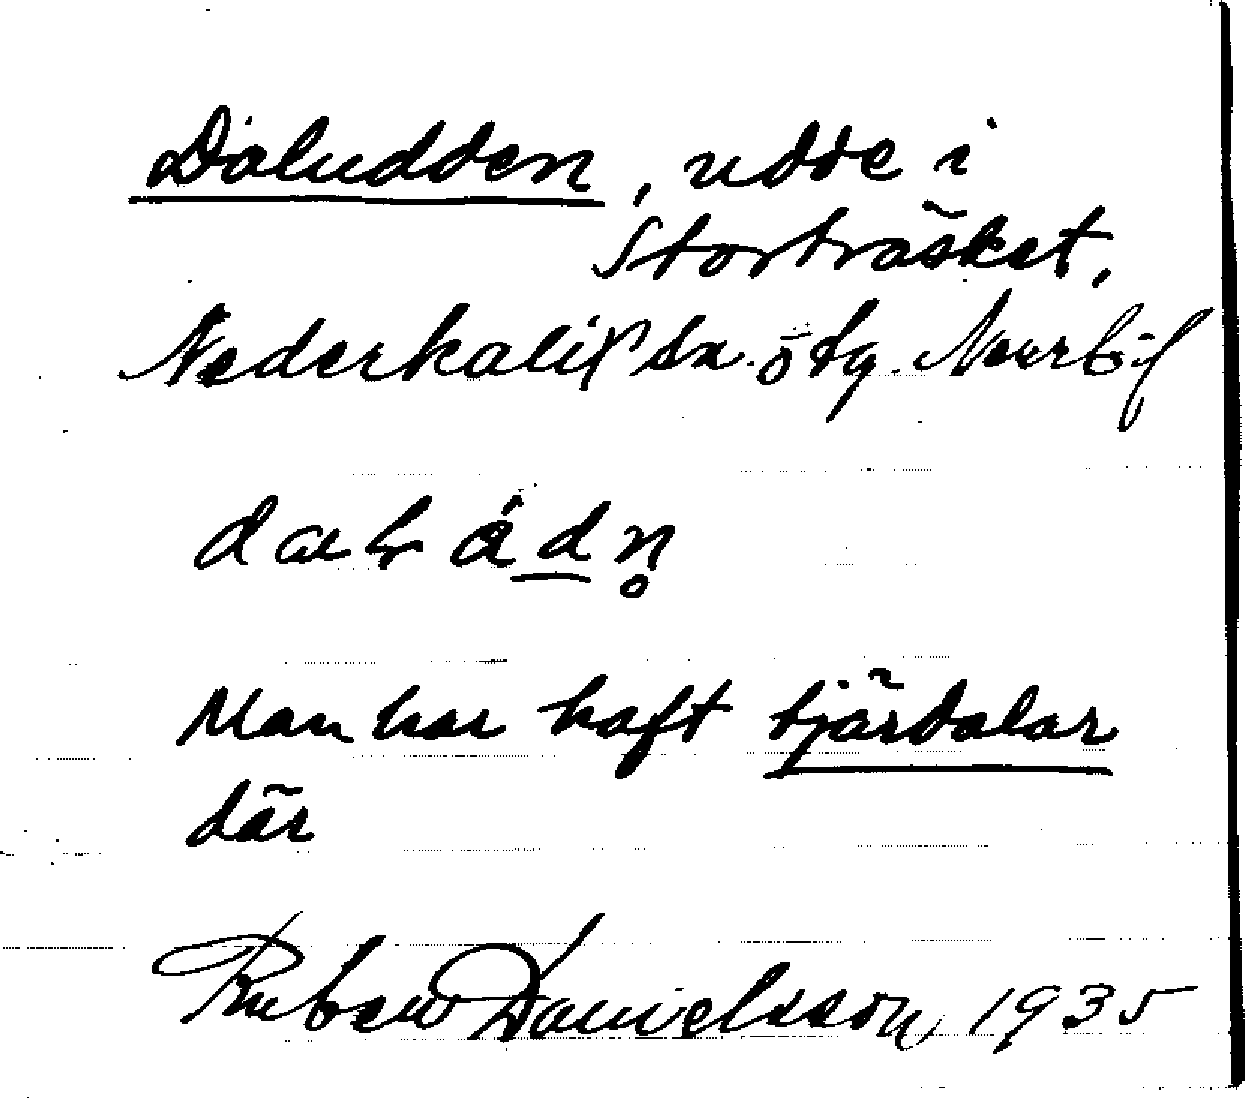 Daludden, udde i
Storträsket,
Nederkalix sn. ö tg. Norrb.
Man har haft tjärdalar
där
Ruben Danielsson, 1935